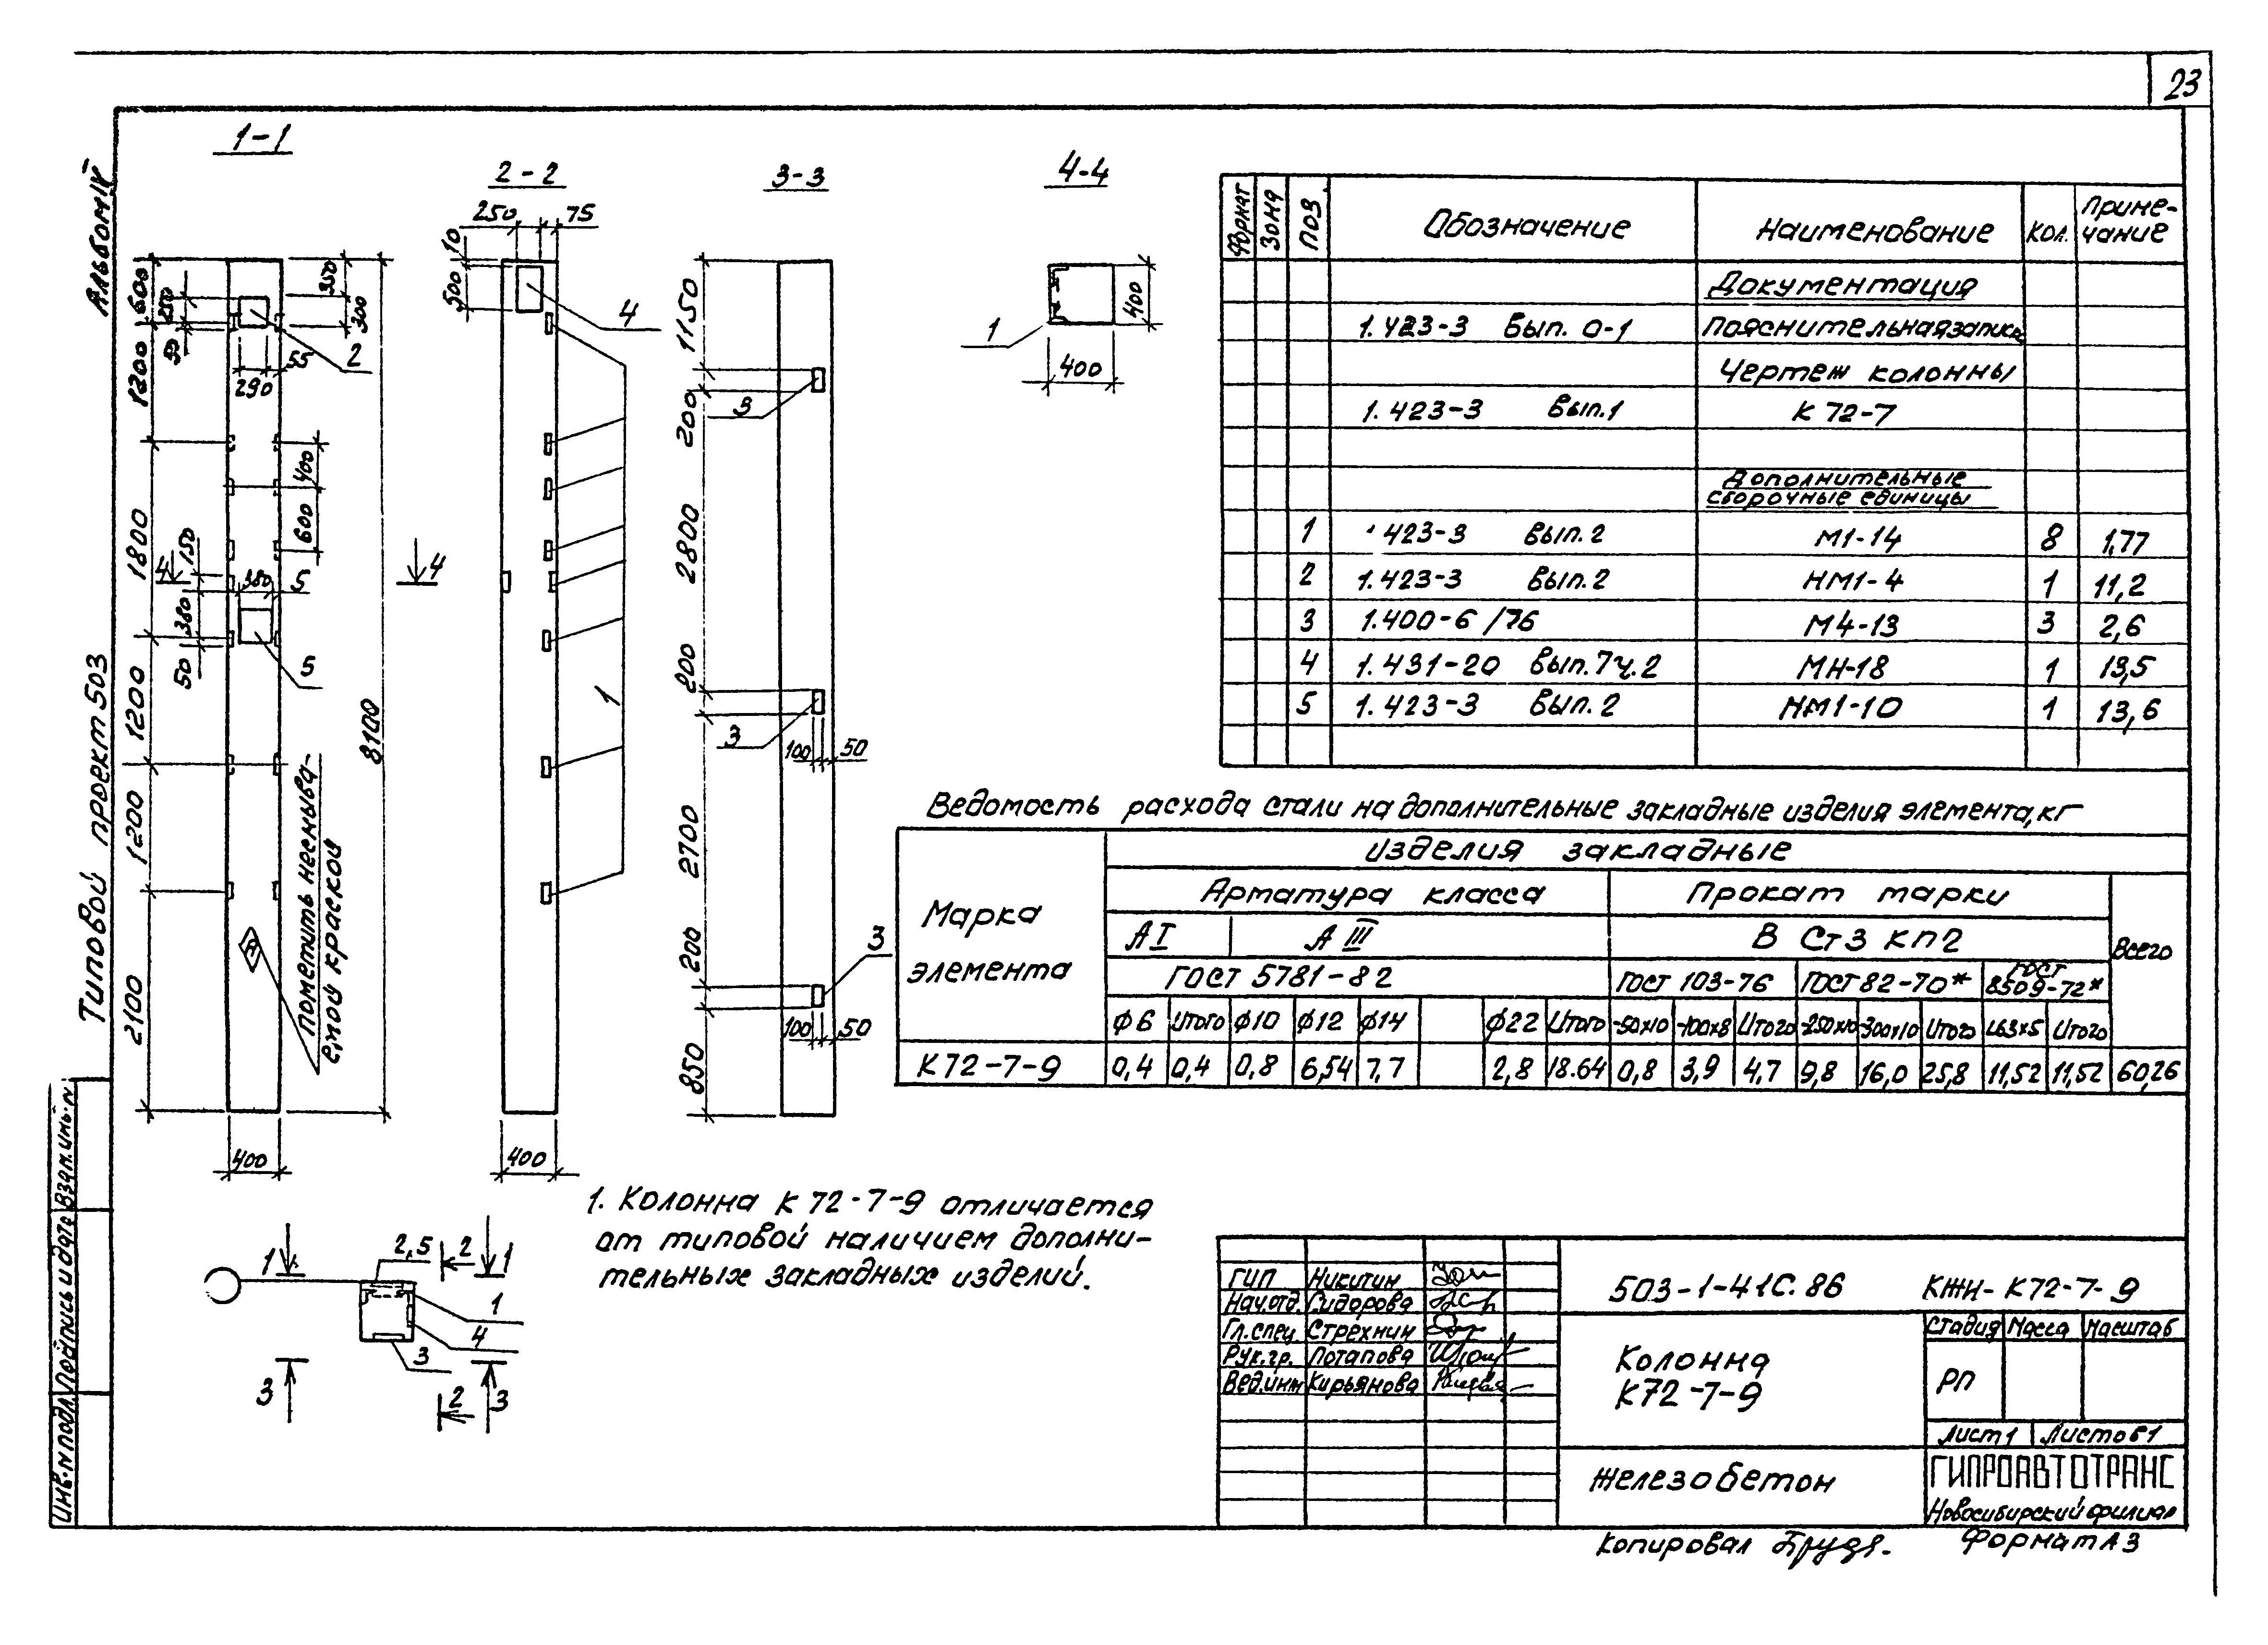 23
Альбом IV
Типовой проект 503
Взам. инв. N
Подпись и дата
Инв. N подл.
1-1
600
250
50
350
300
2
55
290
1200
400
600
1800
150
4
380
5
380
50
5
1200
8100
1200
2100
Пометить несмыва-
емой краской
400
2-2
250
75
10
500
4
4
1
400
3-3
1150
200
3
2800
200
3
100
50
2700
200
3
100
50
850
4-4
400
1
400
1
2,5
2
1
1
4
3
3
2
3
1. Колонна К 72-7-9 отличается
от типовой наличием дополни-
тельных закладных изделий.
Формат
Зона
Поз
Обозначение
Наименование
Кол.
Приме-
чание
Документация
1.423-3 Вып. 0-1 Пояснительная записка
Чертеж колонны
1.423-3 Вып.1 К 72-7
Дополнительные
сборочные единицы
1 423-3 Вып. 2 М1-14 8 1,77
2 1.423-3 Вып. 2 НМ1-4 1 11,2
3 1.400-6/76 М4-13 3 2,6
4 1.431-20 Вып.7ч.2 МН-18 1 13,5
5 1.423-3 Вып. 2 НМ1-10 1 13,6
Ведомость расхода стали на дополнительные закладные изделия элемента, кг
Марка
элемента
Изделия закладные
Арматура класса
Прокат марки
Всего
А I
А III
В Ст3 кп2
ГОСТ 5781-82
ГОСТ 103-76
ГОСТ 82-70*
ГОСТ
8509-72*
ф6 Итого ф10 ф12 ф14 ф22 Итого -50х10 -100х8 Итого -250х10 -300х10 Итого L63х5 Итого
К72-7-9 0,4 0,4 0,8 6,54 7,7 2,8 18.64 0,8 3,9 4,7 9,8 16,0 25,8 11,52 11,52 60,26
ГИП Никитин
Нач.отд. Сидорова
Гл.спец. Стрехнин
Рук.гр. Потапова
Вед.инж Кирьянова
503-1-41С.86 КЖИ-К72-7-9
Колонна
К72-7-9
Стадия Масса Масштаб
РП
Лист 1 Листов 1
Железобетон
ГИПРОАВТОТРАНС
Новосибирский филиал
Копировал
Формат А3